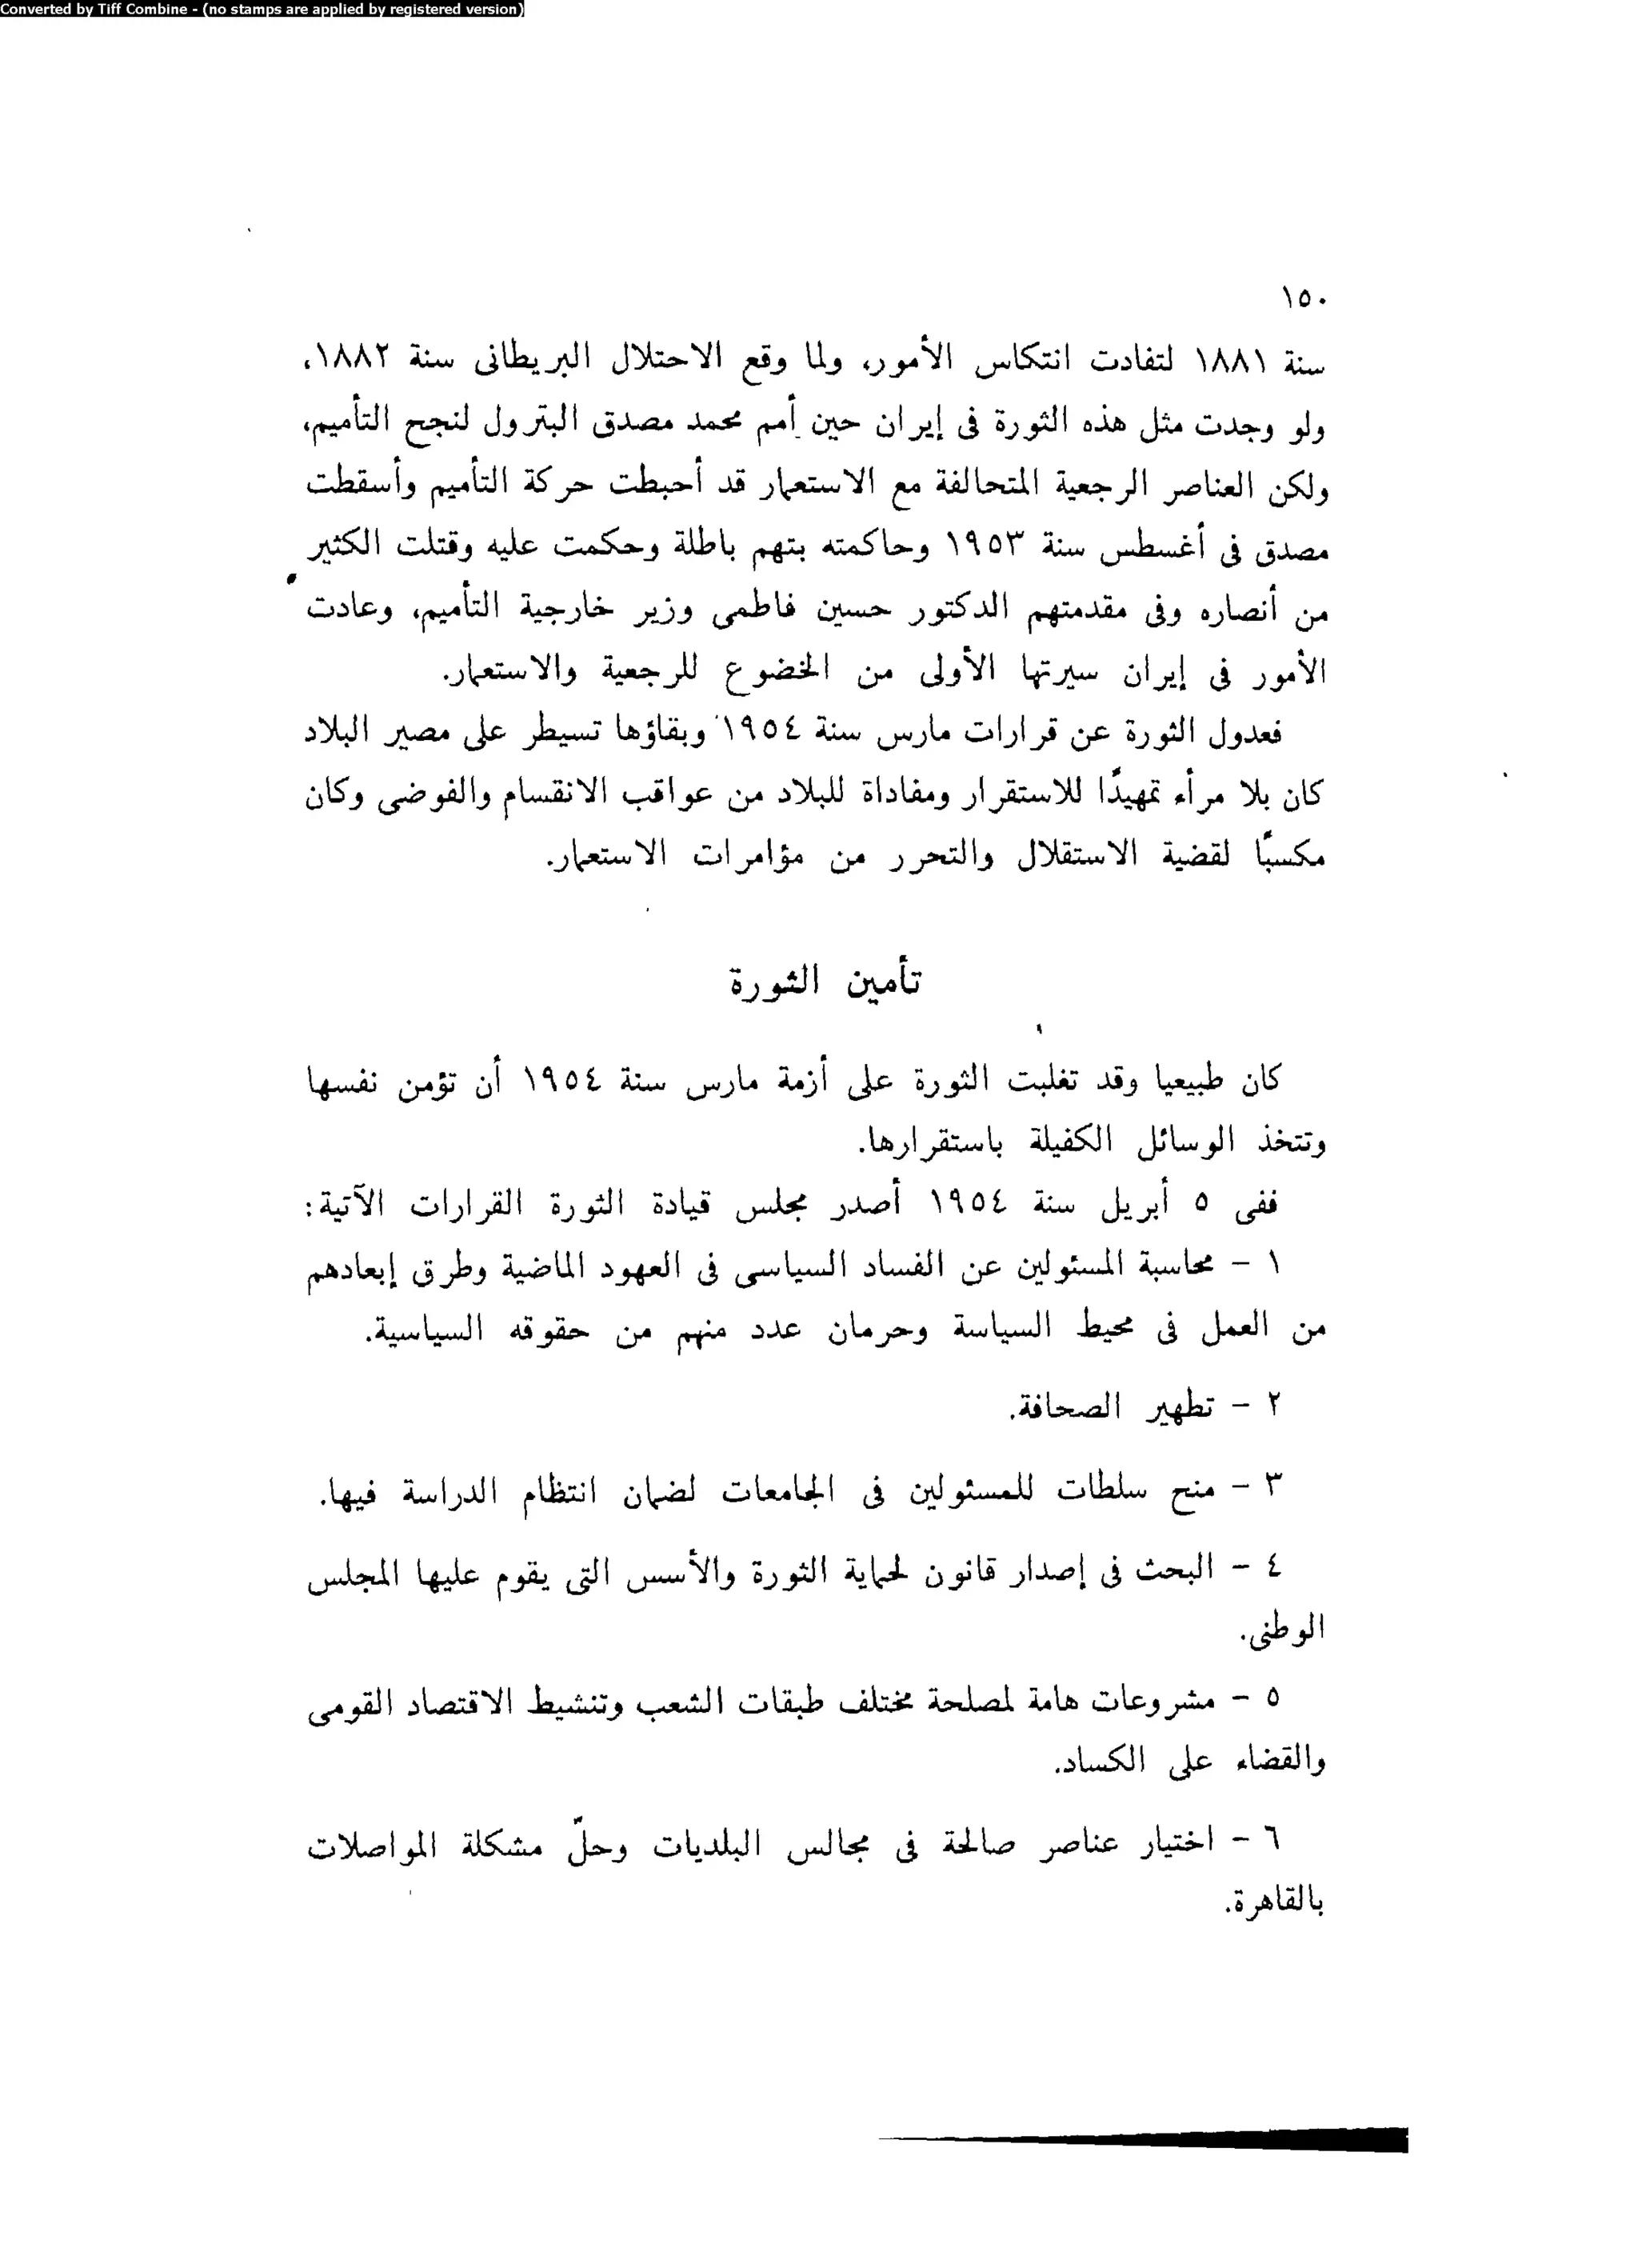 Converted by Tiff Combine - (no stamps are applied by registered version)
١٥٠
سنة ١٨٨١ لتفادت انتكاس الأمور، ولما وقع الاحتلال البريطانى سنة ١٨٨٢،
ولو وجدت مثل هذه الثورة فى إيران حين أمم محمد مصدق البترول لنجح التأميم،
ولكن العناصر الرجعية المتحالفة مع الاستعمار قد أحبطت حركة التأميم وأسقطت
مصدق فى أغسطس سنة ١٩٥٣ وحاكمته بتهم باطلة وحكمت عليه وقتلت الكثير
من أنصاره وفى مقدمتهم الدكتور حسين فاطمى وزير خارجية التأميم، وعادت
الأمور فى إيران سيرتها الأولى من الخضوع للرجعية والاستعمار.
فعدول الثورة عن قرارات مارس سنة ١٩٥٤ وبقاؤها تسيطر على مصير البلاد
كان بلا مرأء تمهيدًا للاستقرار ومفاداة للبلاد من عواقب الانقسام والفوضى وكان
مكسبًا لقضية الاستقلال والتحرر من مؤامرات الاستعمار.
تأمين الثورة
كان طبيعيا وقد تغلبت الثورة على أزمة مارس سنة ١٩٥٤ أن تؤمن نفسها
وتتخذ الوسائل الكفيلة باستقرارها.
ففى ٥ أبريل سنة ١٩٥٤ أصدر مجلس قيادة الثورة القرارات الآتية:
١ - محاسبة المسئولين عن الفساد السياسى فى العهود الماضية وطرق إبعادهم
من العمل فى محيط السياسة وحرمان عدد منهم من حقوقه السياسية.
٢ - تطهير الصحافة.
٣ - منح سلطات للمسئولين فى الجامعات لضمان انتظام الدراسة فيها.
٤ - البحث فى إصدار قانون لحماية الثورة والأسس التى يقوم عليها المجلس
الوطنى.
٥ - مشروعات هامة لمصلحة مختلف طبقات الشعب وتنشيط الاقتصاد القومى
والقضاء على الكساد.
٦ - اختيار عناصر صالحة فى مجالس البلديات وحلّ مشكلة المواصلات
بالقاهرة.